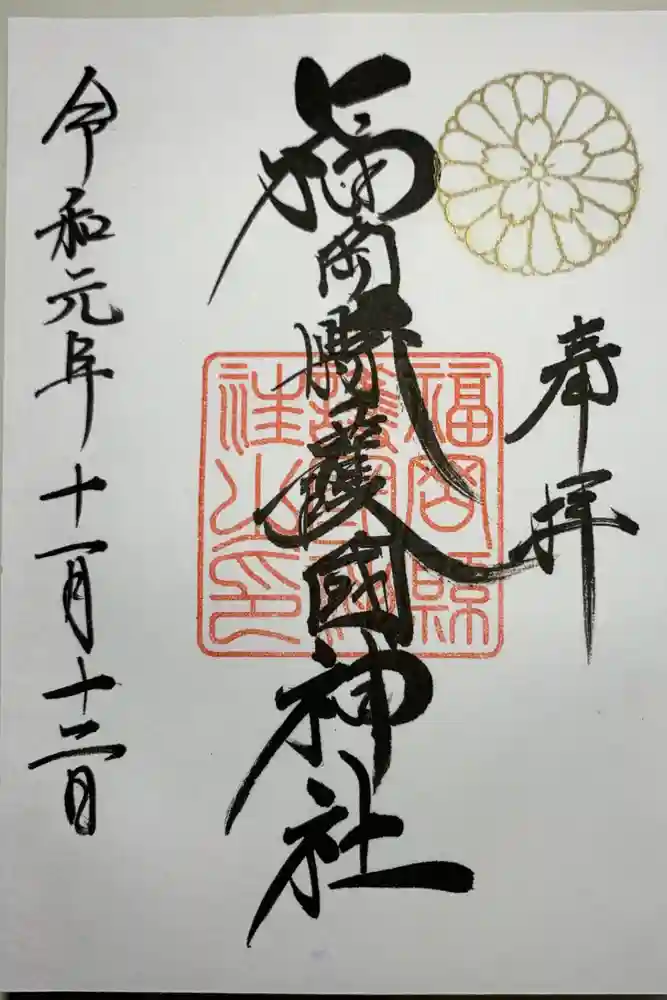 奉拝
福岡縣護國神社
福岡縣
護國神
社之印
令和元年十一月十三日